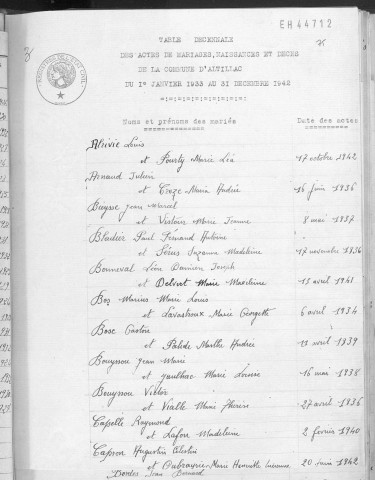 EH44712
TABLE DECENNALE
DES ACTES DE MARIAGES, NAISSANCES ET DECES
DE LA COMMUNE D'ALTILLAC
DU 1er JANVIER 1933 AU 31 DECEMBRE 1942
Noms et prénoms des mariés Date des actes
Louis
et Pourty Marie Léa 17 octobre 1942
Arnaud Julien
et Croze Maria Andrée 16 juin 1936
Buysse Jean Marcel
et Marie Jeanne 8 mai 1937
Paul Fernand Antoine
et Suzanne Madeleine 17 novembre 1936
Bonneval Léon Damien Joseph
et Delvert Marie Madeleine 15 avril 1941
Bos Marius Marie Louis
et Lavastroux Marie Georgette 6 avril 1934
Bosc Gaston
et Marthe Andrée 13 avril 1939
Bouyssou Jean Marie
et Jaulhac Marie Louise 16 mai 1938
Bouyssou Victor
et Vialle 27 avril 1936
Capelle Raymond
et Lafon Madeleine 2 février 1940
Augustin
et Marie Henriette 20 juin 1942
Bordes Jean